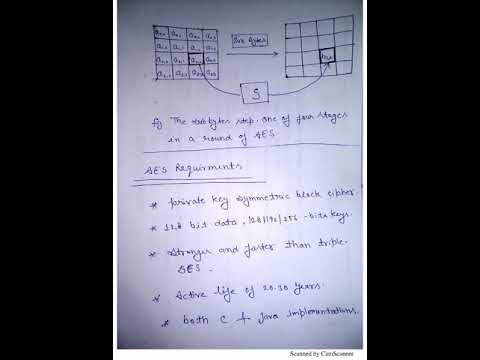 a0,0 a0,1 a0,2 a0,3
Sub Bytes
a1,0 a1,1 a1,2 a1,3
a2,0 a2,1 a2,2 a2,3
b2,2
a3,0 a3,1 a3,2 a3,3
S
fig The subbytes step, one of four stages
in a round of AES
AES Requirments
* private key symmetric block cipher
* 128 bit data, 128/192/256 - bits keys.
* Stronger and faster than triple.
* Active life of 20-30 years.
* both C + Java implementations.
Scanned by CamScanner